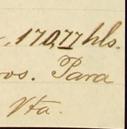 170,77 hls.
os. Para
Vta.